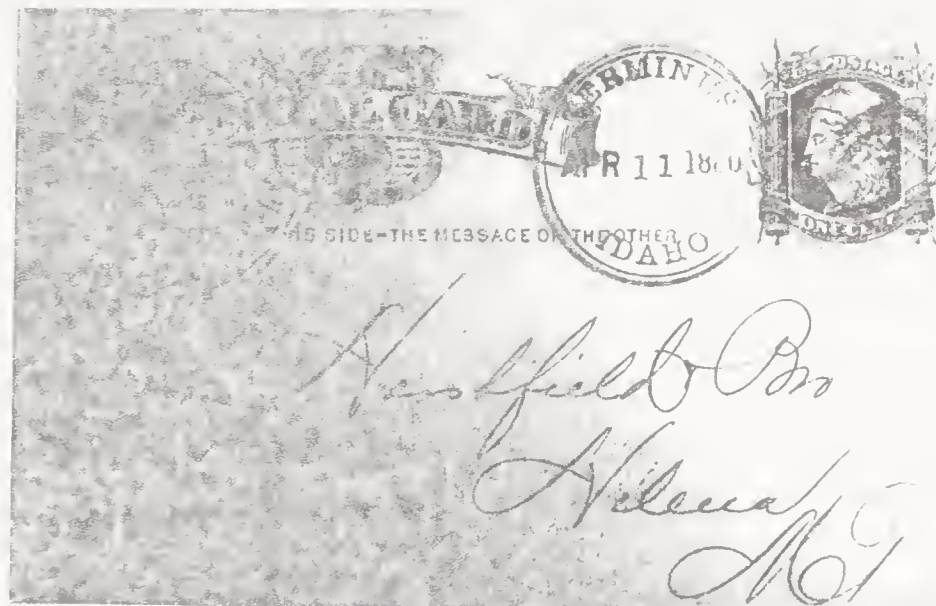 CARD
ERMINUS
APR 11 18 0
IDAHO
ONE CENT
S SIDE-THE MESSAGE ON THE OTHER
& Bro
Helena
M T